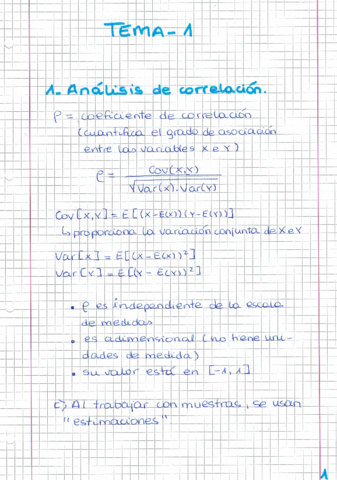 TEMA-1
1- Análisis de correlación.
ρ = coeficiente de correlación
(cuantifica el grado de asociación
entre las variables X e Y)
ρ = Cov(X,Y) / √Var(X).Var(Y)
Cov[X,Y] = E[(X-E(X))(Y-E(Y))]
↳ proporciona la variación conjunta de X e Y
Var[X] = E[(X-E(X))²]
Var[Y] = E[(Y-E(Y))²]
• ρ es independiente de la escala
de medidas
• es adimensional (no tiene uni-
dades de medida)
• su valor está en [-1,1]
Al trabajar con muestras, se usan
"estimaciones"
1